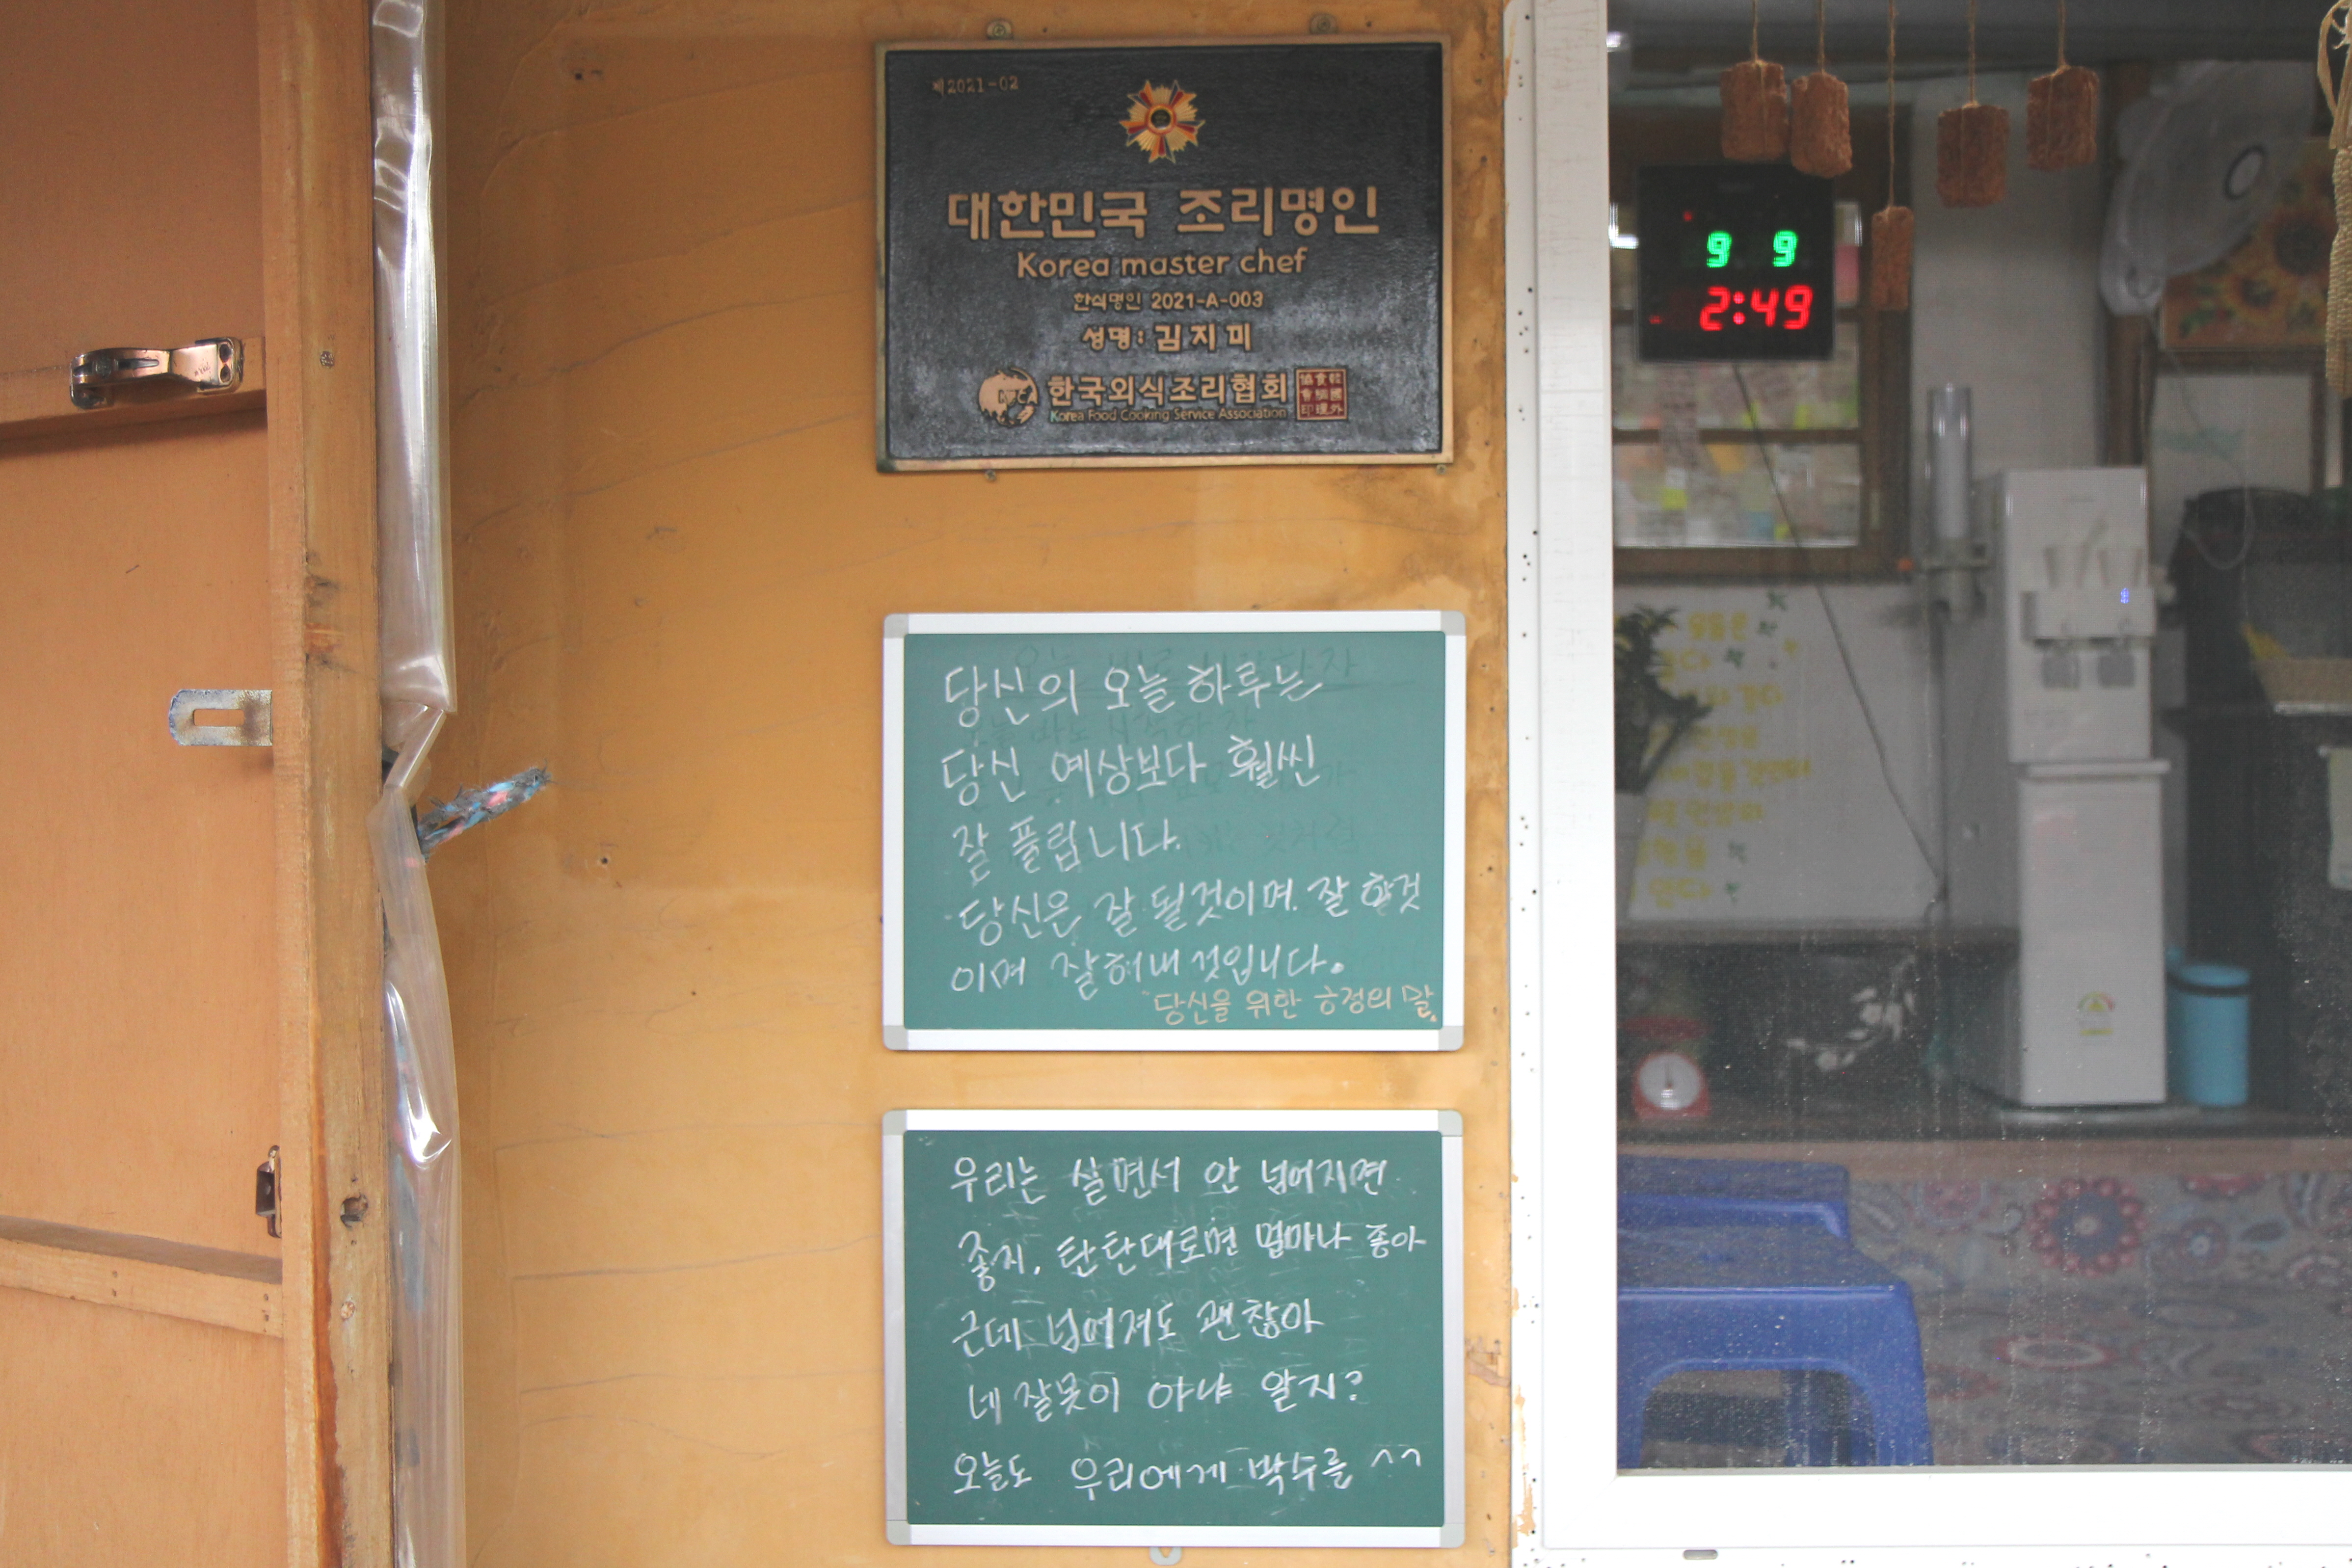 제2021-02
대한민국 조리명인
Korea master chef
한식명인 2021-A-003
성명: 김지미
한국외식조리협회
Korea Food Cooking Service Association
당신의 오늘 하루는
당신 예상보다 훨씬
잘 풀립니다.
당신은 잘 될것이며. 잘 할것
이며 잘해낼것입니다.
"당신을 위한 긍정의 말.
우리는 살면서 안 넘어지면
좋지. 탄탄대로면 얼마나 좋아
근데 넘어져도 괜찮아
네 잘못이 아냐 알지?
오늘도 우리에게 박수를 ^^
9 9
2:49